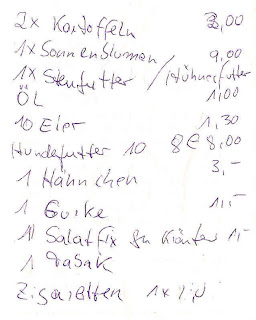 2x Kartoffeln 3,00
1x Sonnenblumen 9,00
1x Streufutter / Hühnerfutter
ÖL 1,00
10 Eier 1,30
Hundefutter 10 8€ 8,00
1 Hähnchen 3,-
1 Gurke 1,-
1 Salatfix Kräuter 1,-
1 Tabak
Zigaretten 1x